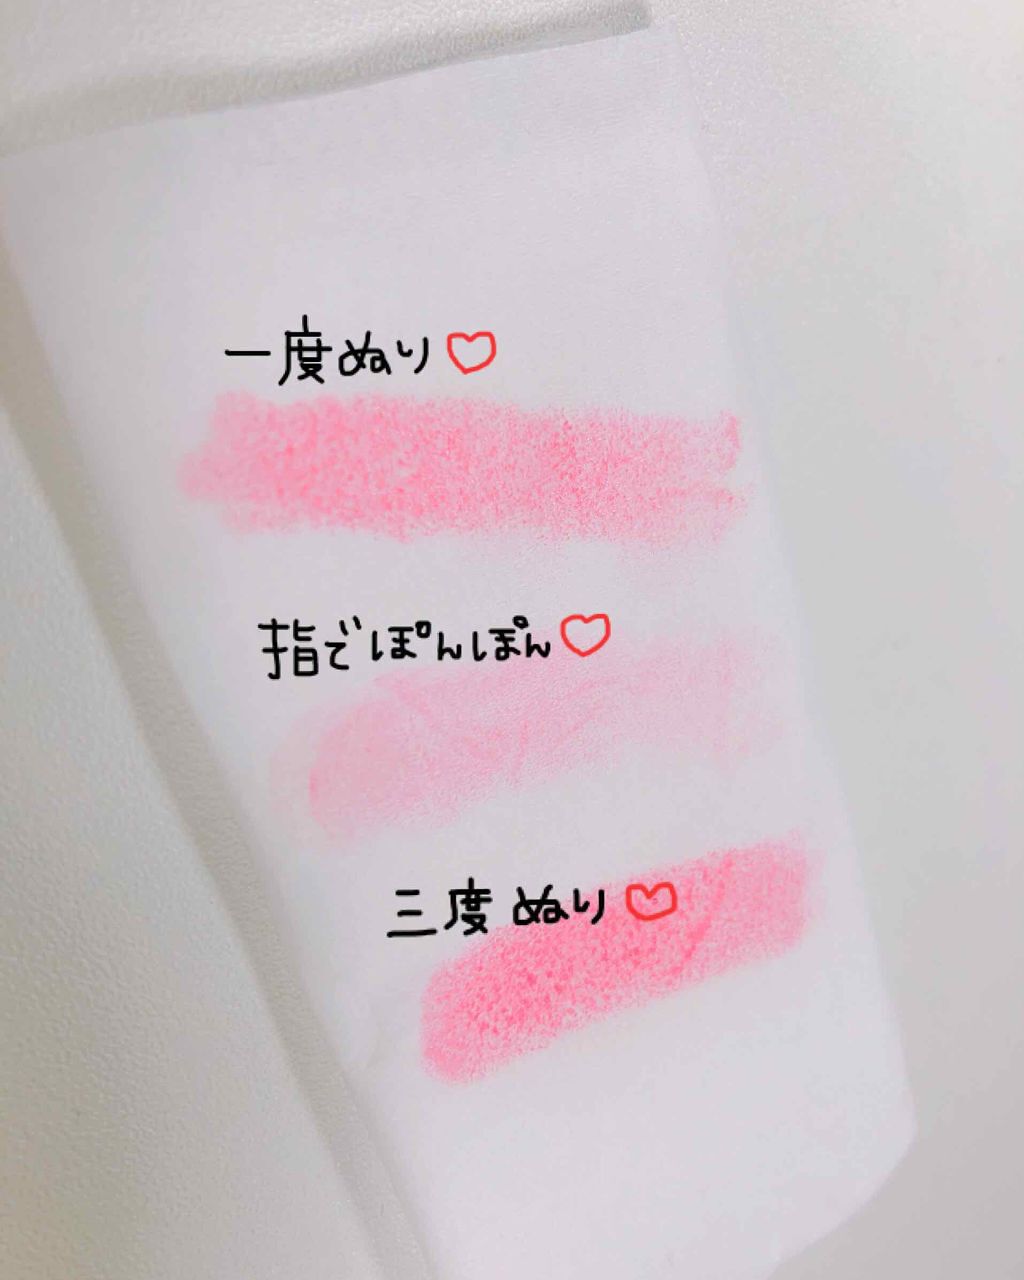 一度ぬり♡
指でぽんぽん♡
三度ぬり♡